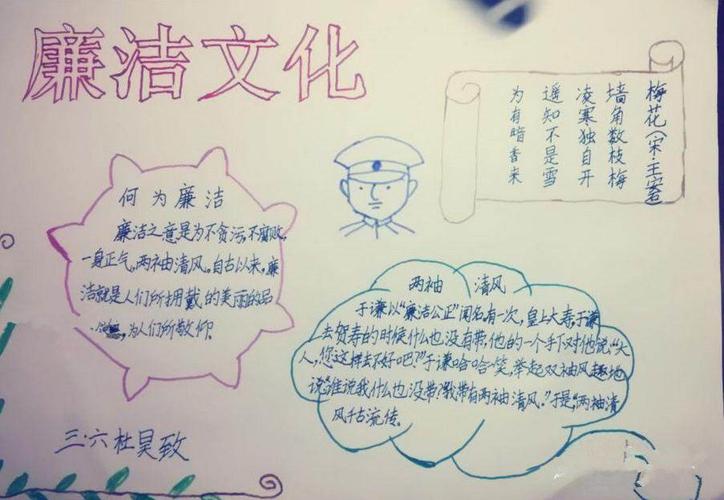 廉洁文化
梅花(宋·王安石)
墙角数枝梅
凌寒独自开
遥知不是雪
为有暗香来
何为廉洁
廉洁之意是为不贪污,不腐败,
一身正气,两袖清风。自古以来,廉
洁就是人们所拥戴的美丽的品
,为人们所敬仰.
两袖 清风
于谦以“廉洁公正”闻名有一次,皇上大寿于谦
去贺寿的时候什么也没有带.他的一个手下对他说:“大
人,您这样去不好吧?”于谦哈哈一笑,举起双袖风趣地
说“谁说我什么也没带?我带有两袖清风.”于是“两袖清
风千古流传.
三·六杜昊致